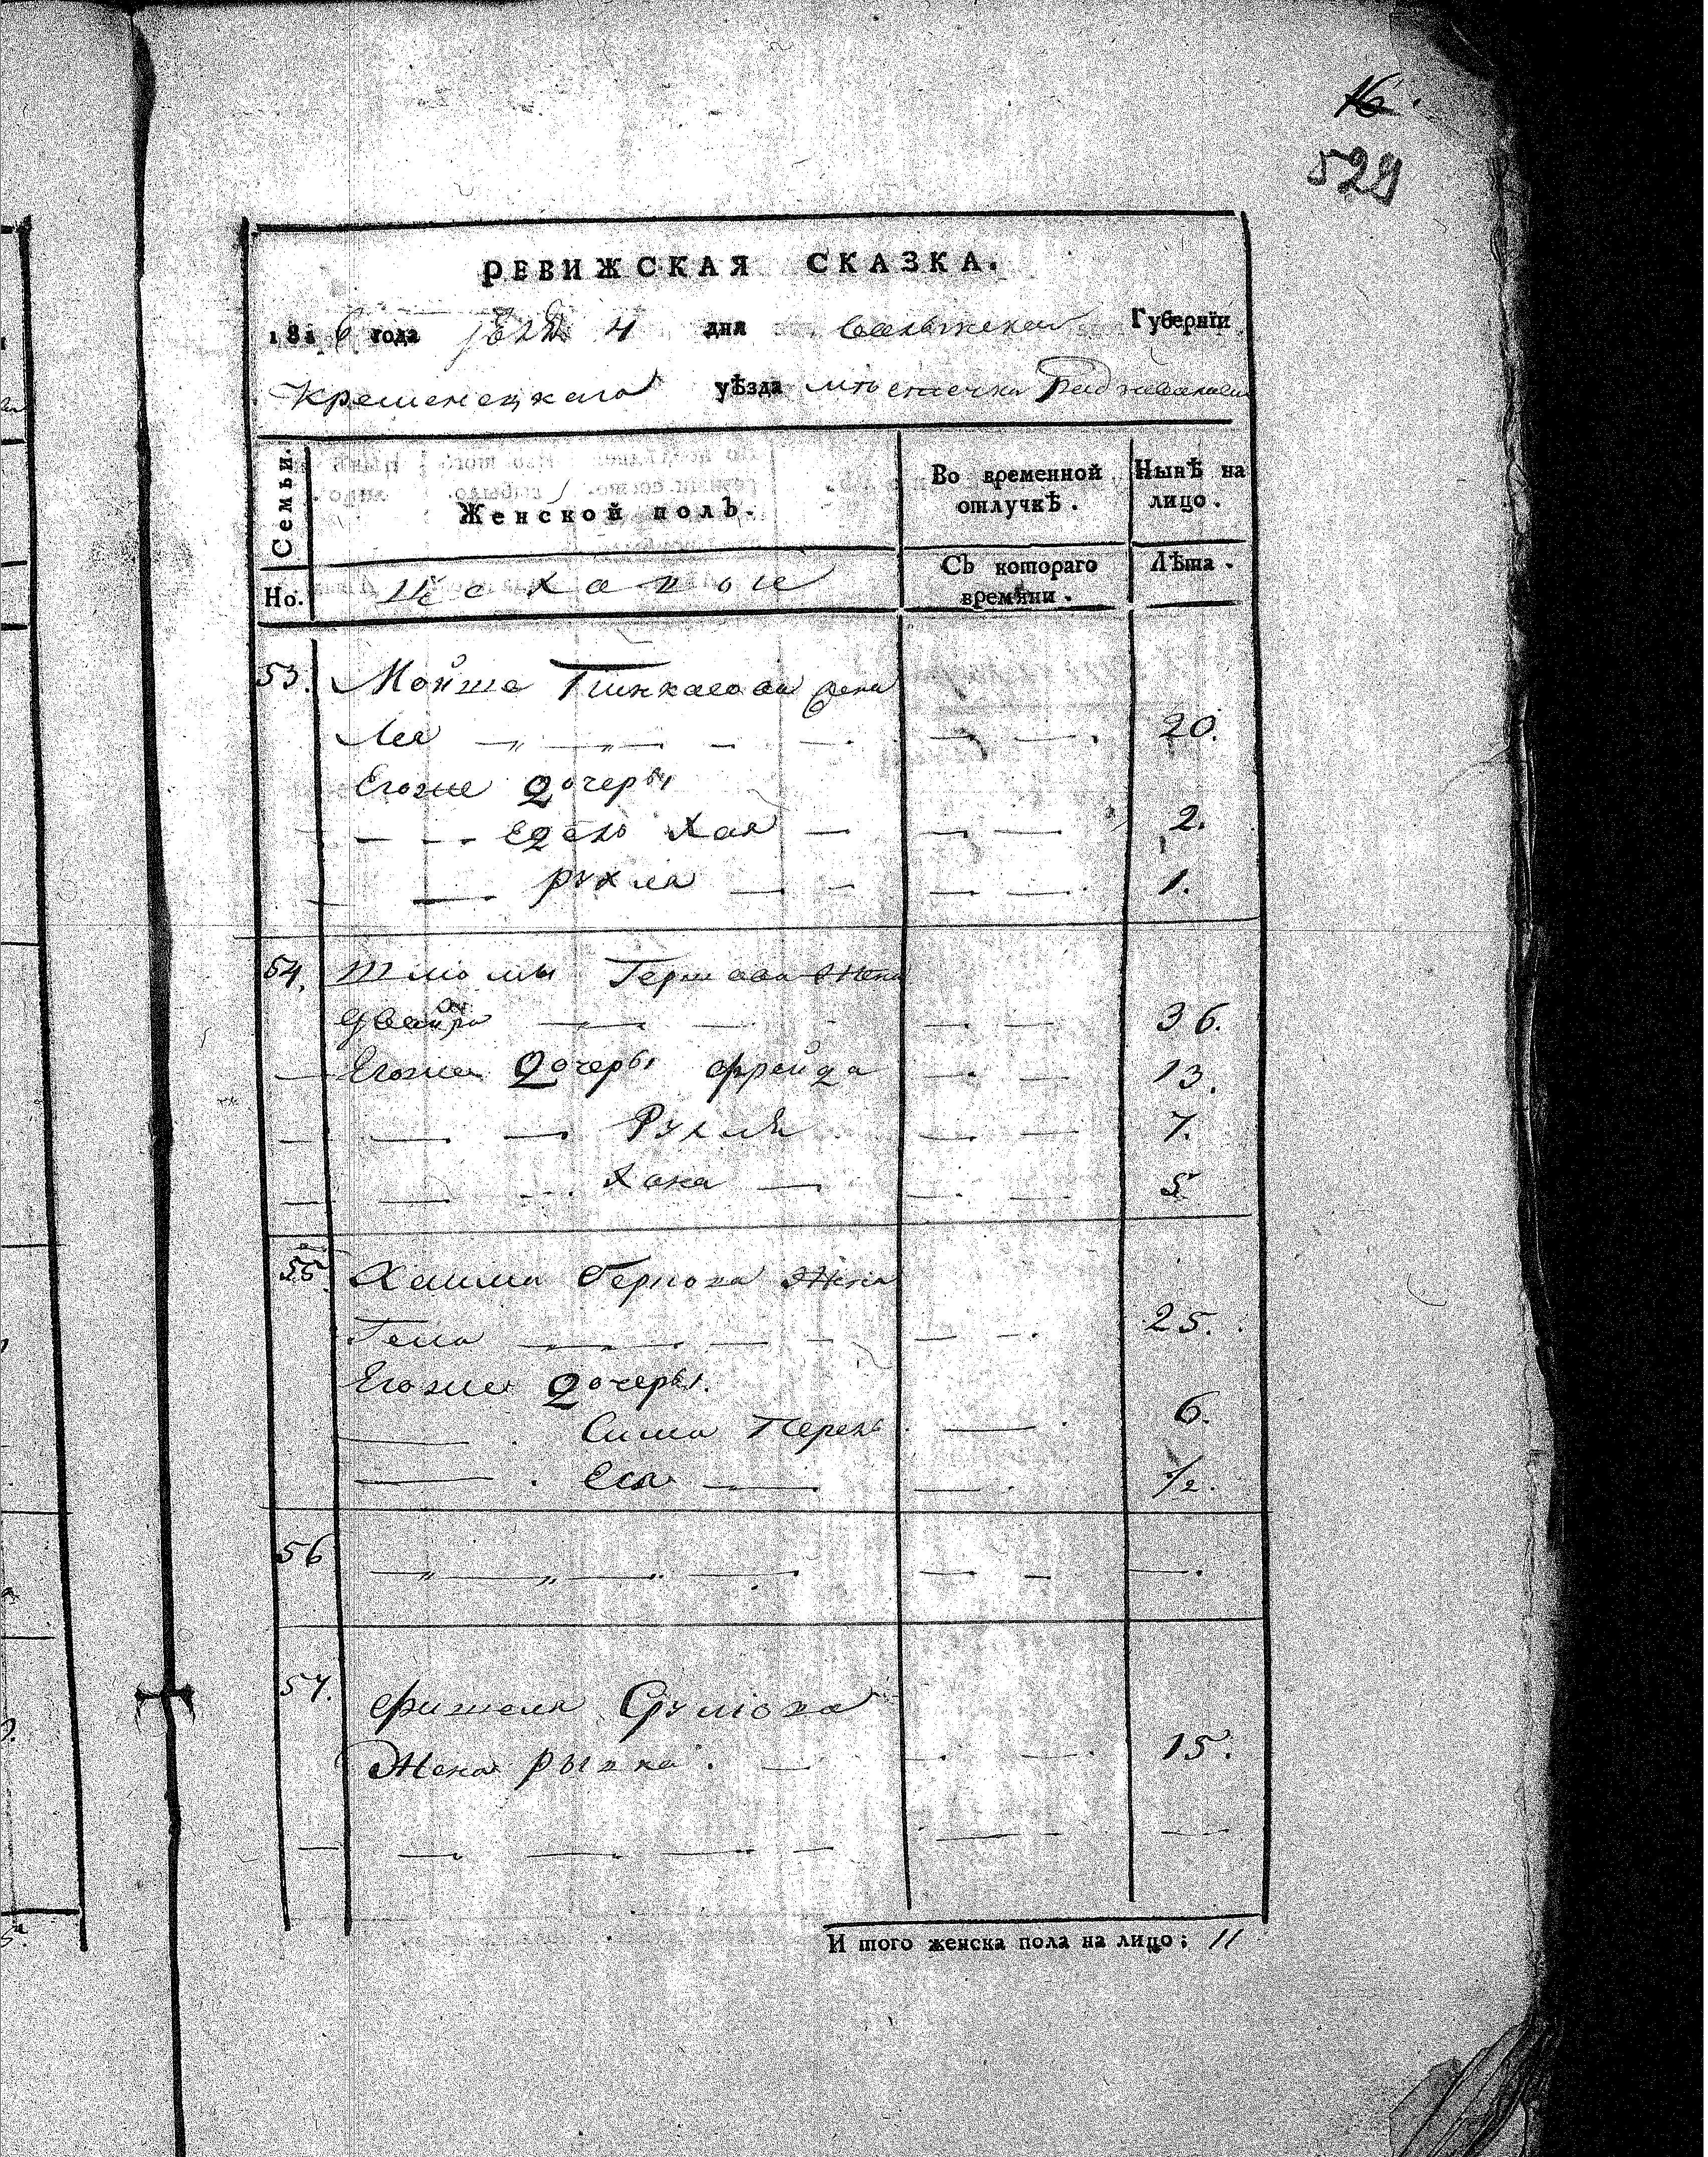 16.
529
РЕВИЖСКАЯ СКАЗКА.
1816 года 4 дня Волынской Губернїи
Кременецкаго уѣзда мѣстечка
Семьи.
Женской полъ.
Во временной отлучкѣ.
Нынѣ на лицо.
Но.
Съ котораго времяни.
Лѣта.
53. Мойша Пинкасова жена
Лея 20.
Егоже дочеры
Едель Хая 2.
рухля 1.
54. Шлиомы Гершова Жена
Двойра 36.
Егоже дочеры фрейда 13.
Рухля 7.
Хана 5
55. Хаима Беркова Жена
25.
Егоже дочеры.
Сима Перель 6.
Еся 1/2.
56
57. фишеля Срулова
Жена рывка. 15.
И того женска пола на лицо: 11